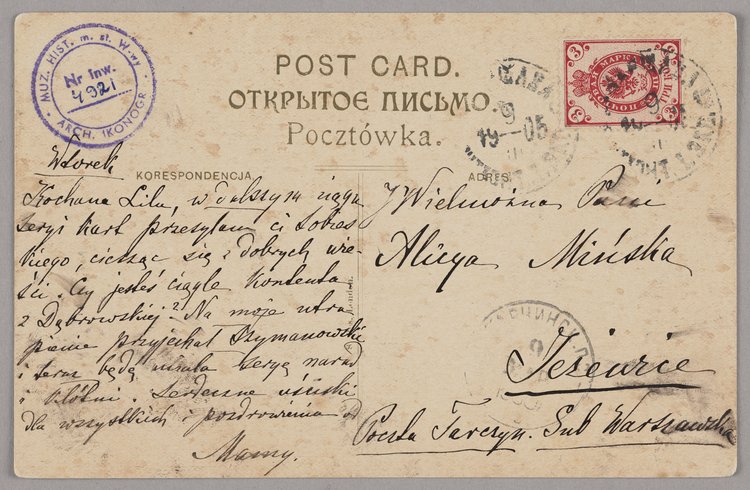 MUZ. HIST. m. st. W-wy
Nr inw.
4921
ARCH. IKONOGR.
POST CARD.
ОТКРЫТОЕ ПИСЬМО.
Pocztówka.
3 3
МАРКА
3 3
9
19 05
9
Wtorek
KORESPONDENCJA
ADRES
Kochana Lilu, w dalszym ciągu
seryi kart przesyłam ci Sobies
kiego, ciesząc się z dobrych wie-
ści. Czy jesteś ciągle kontenta
z Dąbrowskiej? Na moje utra
pienie przyjechał Szymanowski
i teraz będą serya narad
i kłótni. Serdeczne uściski
dla wszystkich i pozdrowienia
Mamy.
JWielmożna Pani
Alicya Mińska
Jeziewie
Poczta Tarczyn. Gub Warszawska